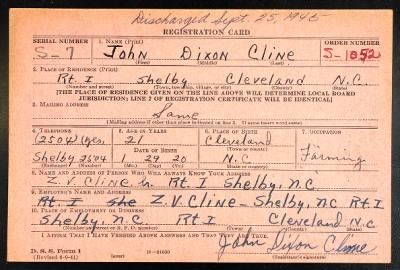 Discharged Sept. 25, 1945
REGISTRATION CARD
SERIAL NUMBER 1. NAME (Print) ORDER NUMBER
S-7 John Dixon Cline S-1052
(First) (Middle) (Last)
2. PLACE OF RESIDENCE (Print)
Rt. I Shelby Cleveland N.C.
(Number and street) (Town, township, village, or city) (County) (State)
[THE PLACE OF RESIDENCE GIVEN ON THE LINE ABOVE WILL DETERMINE LOCAL BOARD
JURISDICTION; LINE 2 OF REGISTRATION CERTIFICATE WILL BE IDENTICAL]
3. MAILING ADDRESS
Same
[Mailing address if other than place indicated on line 2. If same insert word same]
4. TELEPHONE 5. AGE IN YEARS 6. PLACE OF BIRTH 7. OCCUPATION
(2504) (yes) 21 Cleveland
DATE OF BIRTH (Town or county)
Shelby 2504 1 29 20 N.C Farming
(Exchange) (Number) (Mo.) (Day) (Yr.) (State or country)
8. NAME AND ADDRESS OF PERSON WHO WILL ALWAYS KNOW YOUR ADDRESS
Z.V. Cline Rt. I Shelby, N.C.
9. EMPLOYER'S NAME AND ADDRESS
Rt. I She Z.V. Cline - Shelby, NC Rt. I
10. PLACE OF EMPLOYMENT OR BUSINESS
Shelby, N.C. Rt I Cleveland N.C
(Number and street or R. F. D. number) (Town) (County) (State)
I AFFIRM THAT I HAVE VERIFIED ABOVE ANSWERS AND THAT THEY ARE TRUE.
D. S. S. Form 1
(Revised 6-9-41) 16-21630 John Dixon Cline